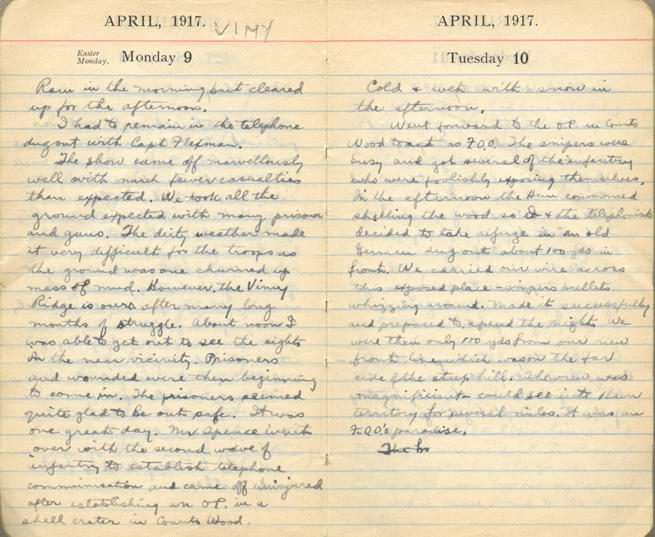 APRIL, 1917.
VIMY
Easter Monday. Monday 9
Rain in the morning but cleared
up for the afternoon.
I had to remain in the telephone
dugout with Capt Flexman.
The show came off marvellously
well with much fewer casualties
than expected. We took all the
ground expected with many prisoners
and guns. The dirty weather made
it very difficult for the troops as
the ground was one churned up
mass of mud. However, the Vimy
Ridge is ours after many long
months of struggle. About noon I
was able to get out to see the sights
in the near vicinity. Prisoners
and wounded were then beginning
to come in. The prisoners seemed
quite glad to be out safe. It was
one great day. Mr Spence went
over with the second wave of
infantry to establish telephone
communication and came off uninjured
after establishing an O.P. in a
shell crater in Counts Wood.
APRIL, 1917.
Tuesday 10
Cold & wet with snow in
the afternoon.
Went forward to the O.P. in Counts
Wood to act as F.O.O. The snipers were
busy and got several of the infantry
who were foolishly exposing themselves.
In the afternoon the Hun commenced
shelling the wood so I & the telephonists
decided to take refuge in an old
German dugout about 100 yds in
front. We carried our wire across
this exposed place - snipers bullets
whizzing around. Made it successfully
and prepared to spend the night. We
were then only 100 yds from our new
front line which was on the far
side of the steep hill. The view was
magnificent - could see into Hun
territory for several miles. It was an
F.O.O's paradise.